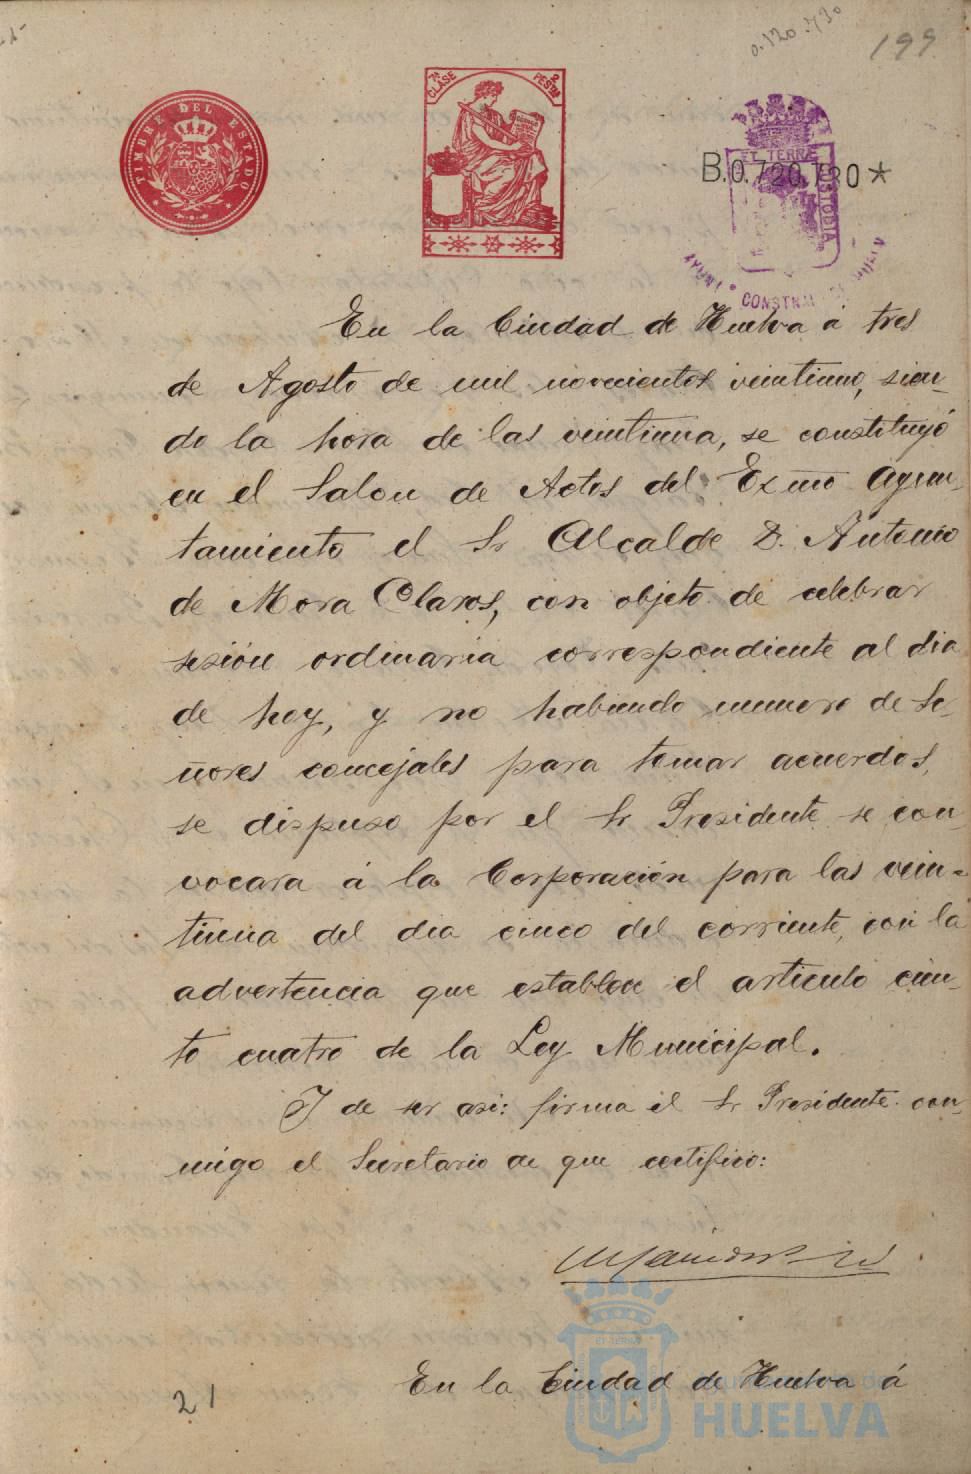 199
0.720.730
TIMBRE DEL ESTADO
7ª CLASE 2 PESETAS
B.0.720.730*
ET TERRÆ CUSTODIA
En la Ciudad de Huelva á tres
de Agosto de mil novecientos veintiuno, sien-
do la hora de las veintiuna, se constituyó
en el Salon de Actos del Exmo Ayun-
tamiento el Sr Alcalde D. Antonio
de Mora Claros, con objeto de celebrar
sesión ordinaria correspondiente al dia
de hoy, y no habiendo numero de Se-
ñores concejales para tomar acuerdos,
se dispuso por el Sr Presidente se con-
vocara á la Corporación para las vein-
tiuna del dia cinco del corriente, con la
advertencia que establece el articulo cien-
to cuatro de la Ley Municipal.
Y de ser asi: firma el Sr Presidente con-
migo el Secretario de que certifico:
En la Ciudad de Huelva á
21
HUELVA